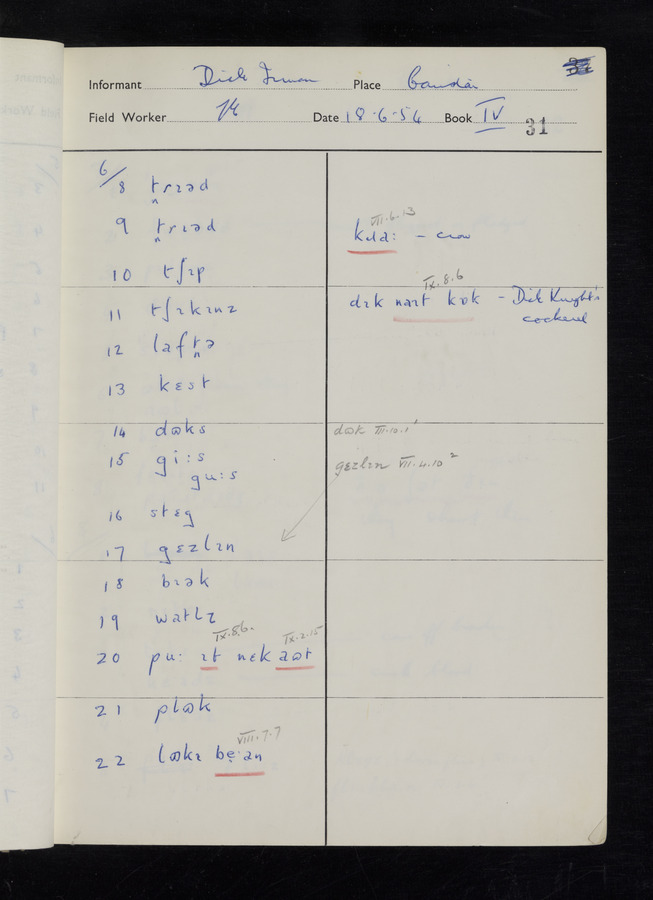 Informant Dick Inman Place
Field Worker Date 18·6·54 Book IV 31
6/8 t̪ɾɪəd
9 t̪ɾɪəd
VII.6.13
kɹɑː – crow
10 tʃɪp
IX.8.6
11 tʃɪkɪnz
dɪk naɪt kɒk – Dick Knight's
cockerel
12 laft̪ə
13 kɛst
14 dʊks
dʊk VII.10.1
15 giːs
guːs
gɛzlɪn VII.4.10 2
16 stɛg
17 gɛzlɪn
18 bɪək
19 watlz
IX.8.6. IX.2.15
20 puː ɪt nɛk aʊt
21 plʊk
VIII.7.7
22 lʊkɪ bɛːan